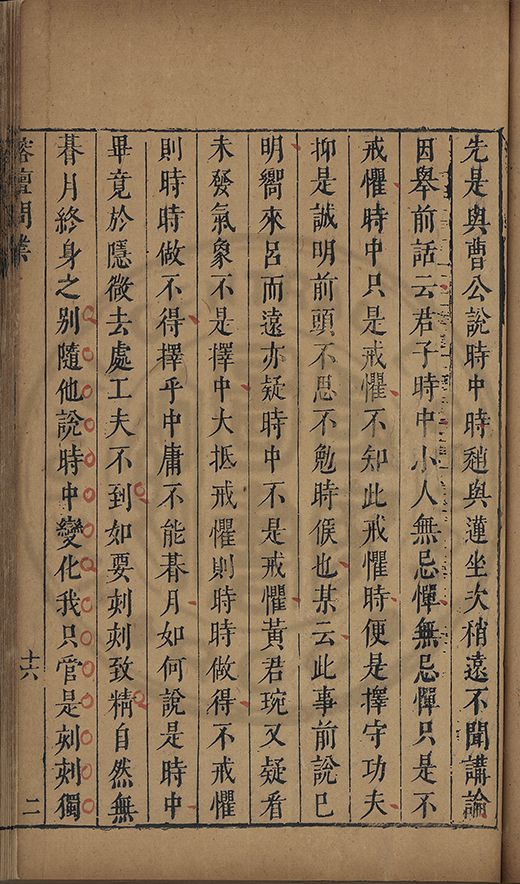 先是與曹公說時中時趙與蓮坐次稍遠不聞講論
因舉前話云君子時中小人無忌憚無忌憚只是不
戒懼時中只是戒懼不知此戒懼時便是擇守功夫
抑是誠明前頭不思不勉時候也某云此事前說已
明嚮來呂而遠亦疑時中不是戒懼黃君琬又疑看
未發氣象不是擇中大抵戒懼則時時做得不戒懼
則時時做不得擇乎中庸不能朞月如何說是時中
畢竟於隱微去處工夫不到如要刻刻致精自然無
朞月終身之別隨他說時中變化我只管是刻刻獨
榕壇問業
十六
二